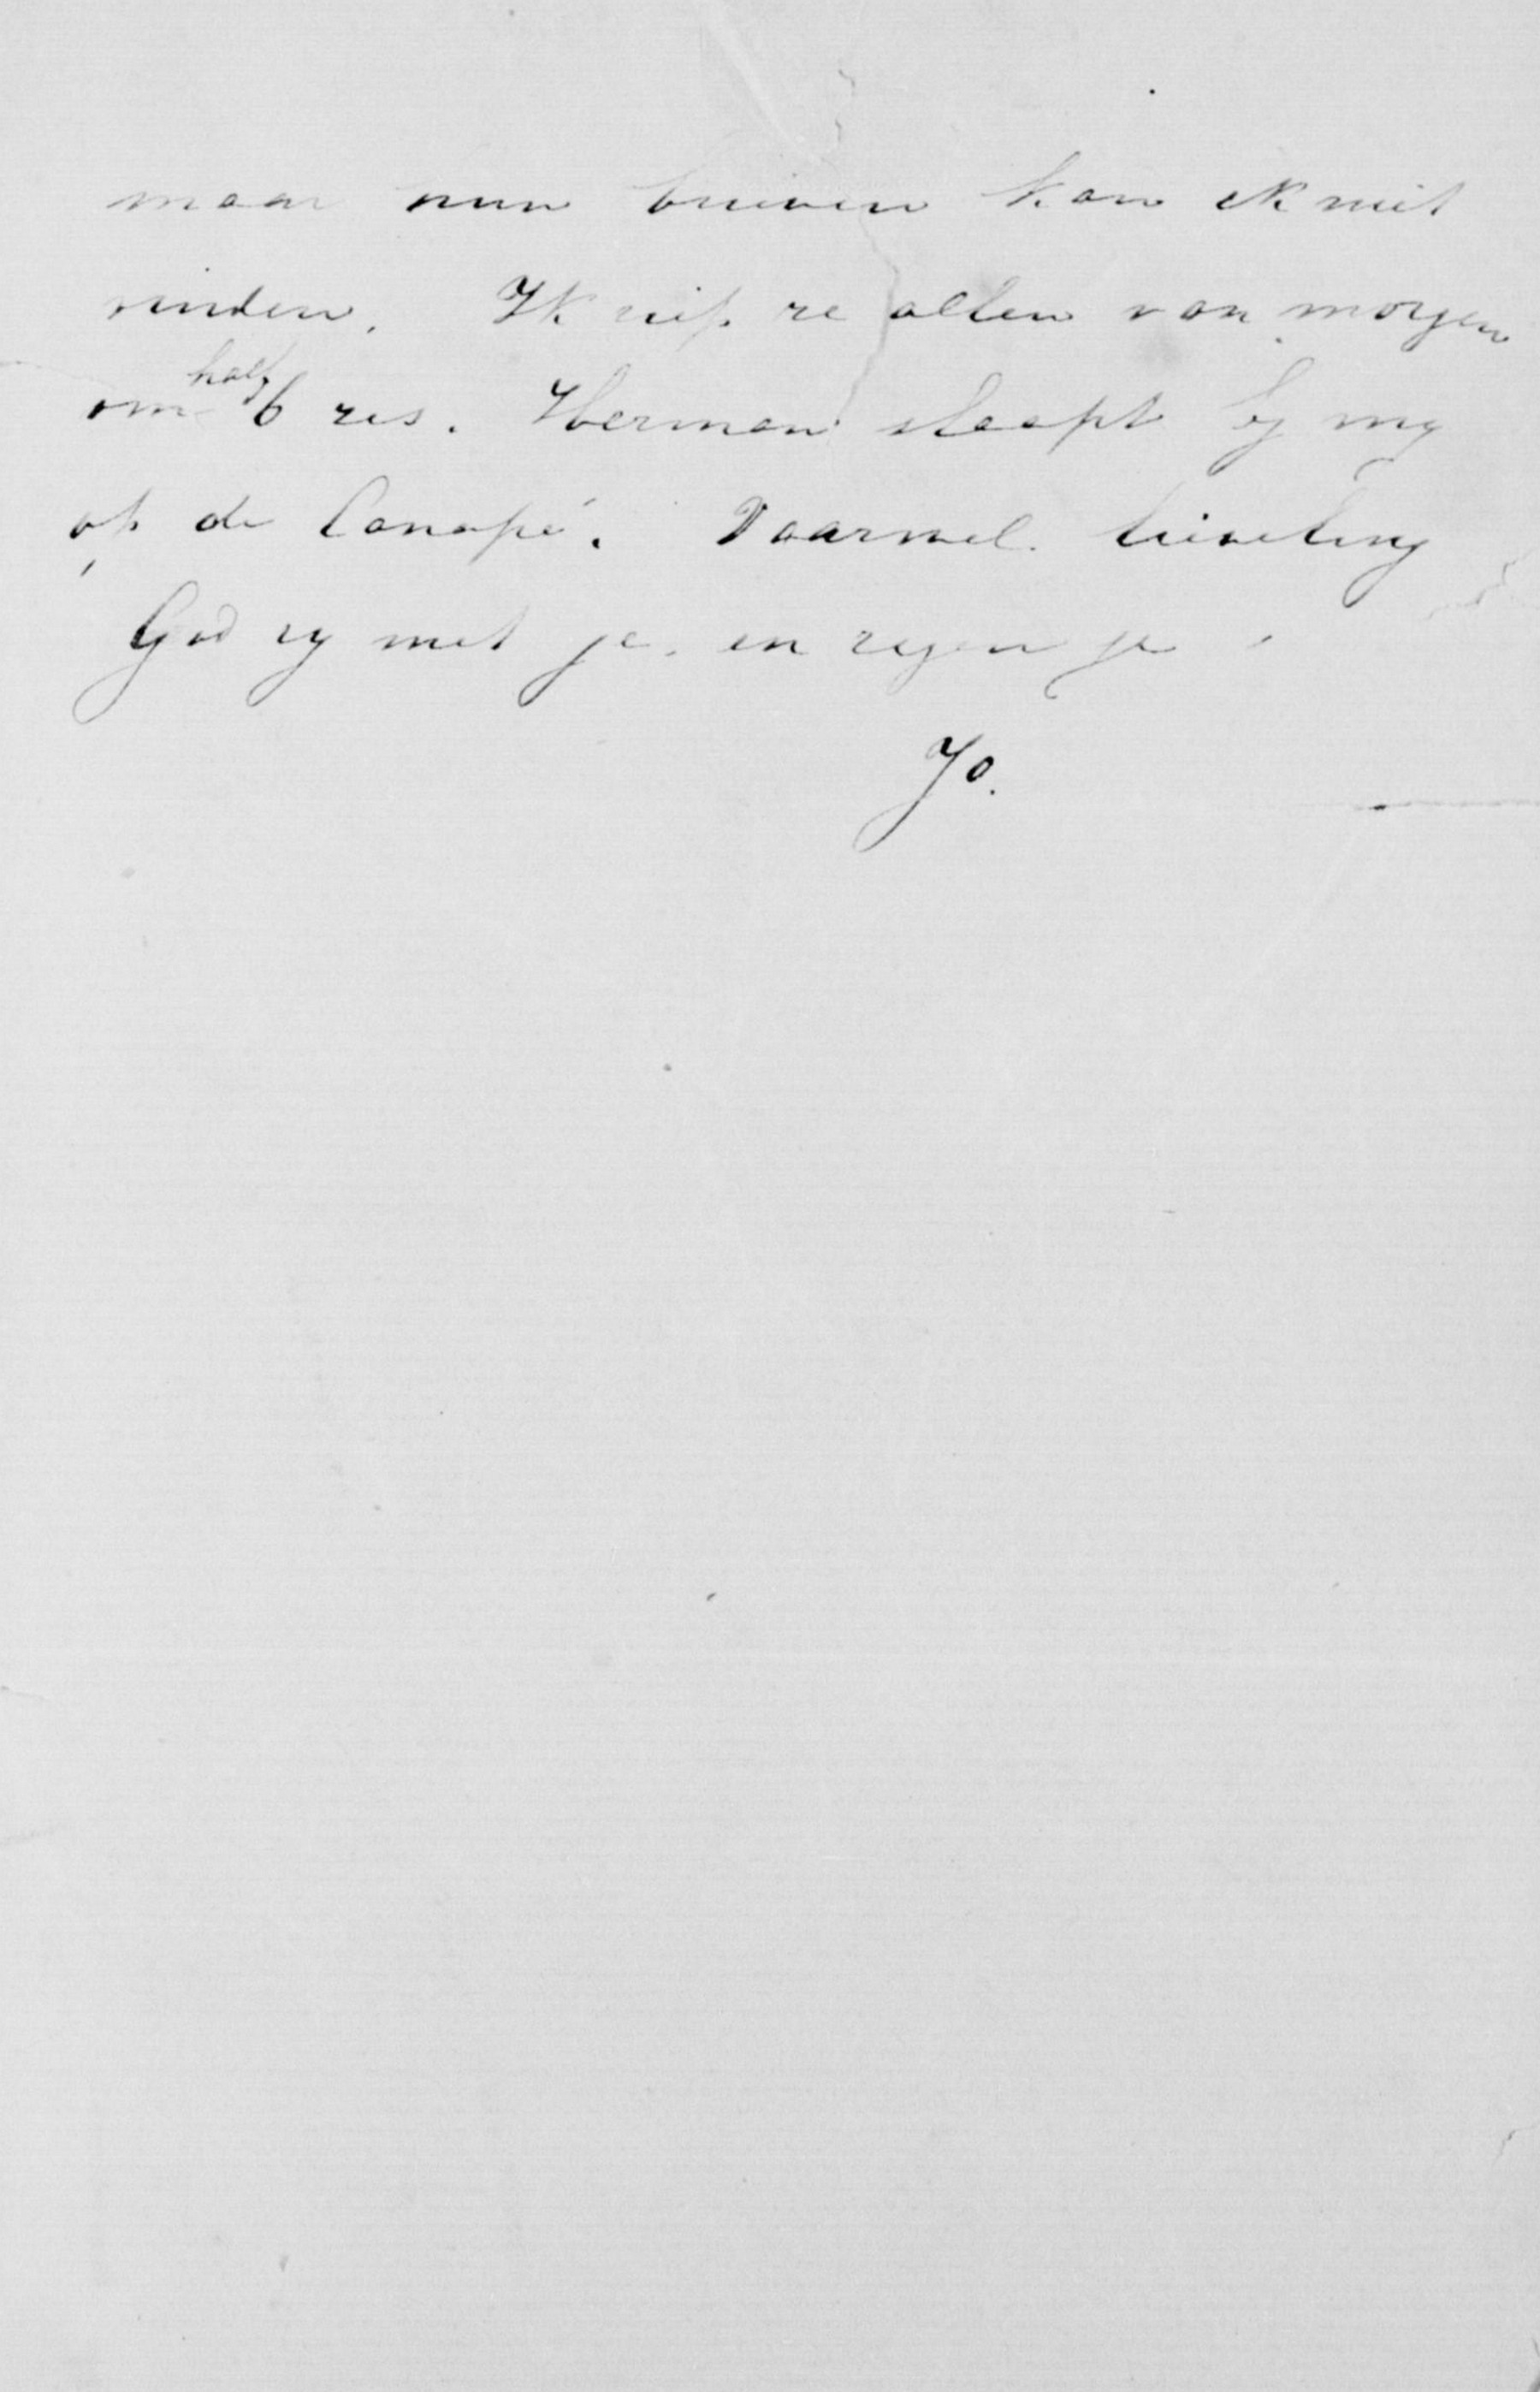 maar nun brieven kan ik niet
vinden. Ik riep ze allen van morgen
om half 6 zes. Herman slaapt bij mij
op de Canapé. Vaarwel lieveling
God zij met je. en zegen je
Jo.